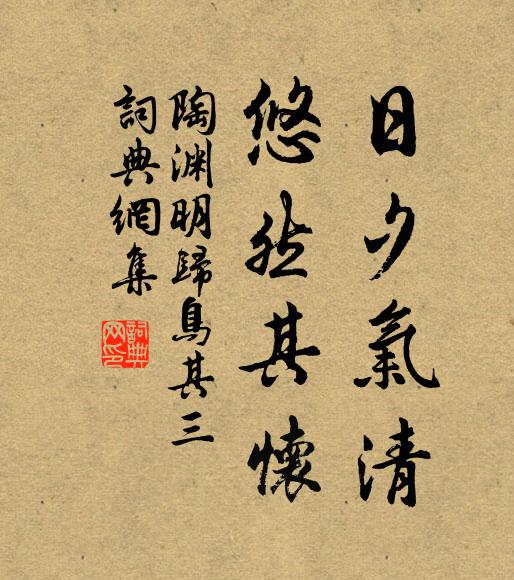 日夕氣清
悠然其懷
陶渊明歸鳥其三
詞典網集
詞典网印